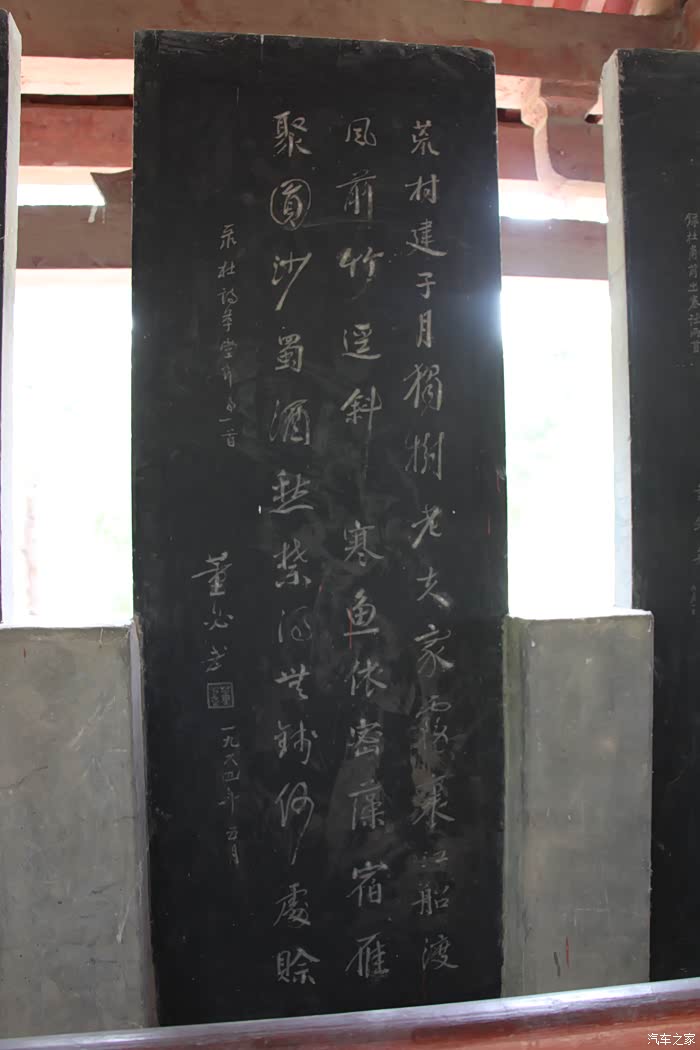 荒村建子月獨樹老夫家霧裏江船渡
風前竹逕斜 寒魚依密藻宿雁
聚圓沙蜀酒愁禁得無錢何處賒
录杜詩草堂即事一首
董必武
一九六四年五月
録杜甫前出塞詩首
汽车之家